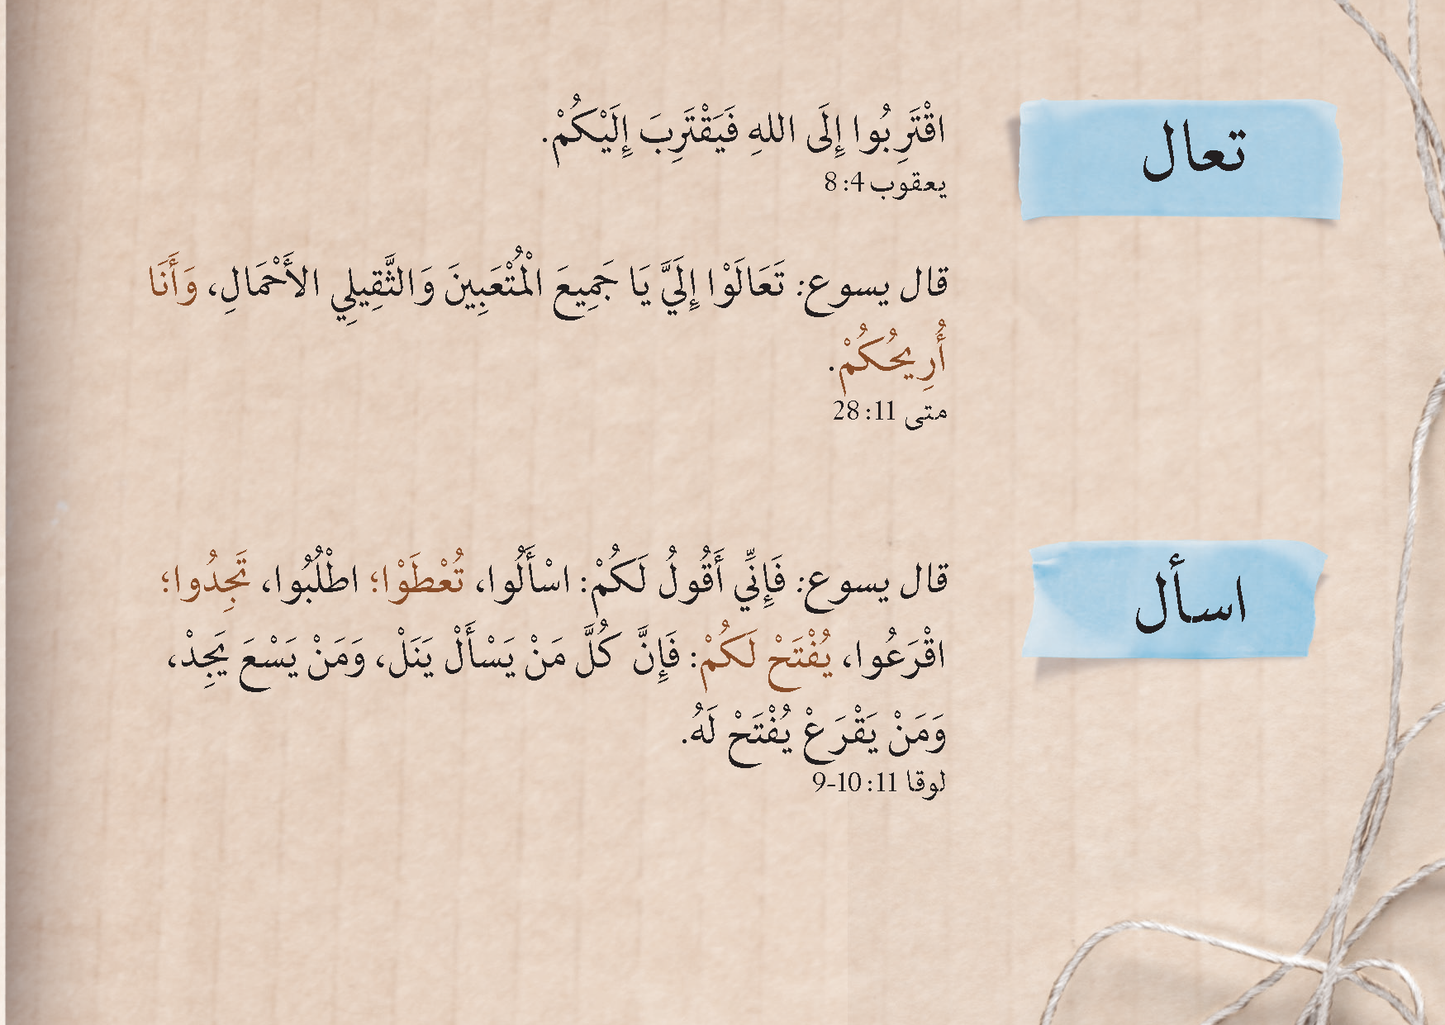 تعال
اقْتَرِبُوا إِلَى اللهِ فَيَقْتَرِبَ إِلَيْكُمْ.
يعقوب 4: 8
قال يسوع: تَعَالَوْا إِلَيَّ يَا جَمِيعَ الْمُتْعَبِينَ وَالثَّقِيلِي الأَحْمَالِ، وَأَنَا
أُرِيحُكُمْ.
متى 11: 28
اسأل
قال يسوع: فَإِنِّي أَقُولُ لَكُمْ: اسْأَلُوا، تُعْطَوْا؛ اطْلُبُوا، تَجِدُوا؛
اقْرَعُوا، يُفْتَحْ لَكُمْ: فَإِنَّ كُلَّ مَنْ يَسْأَلْ يَنَلْ، وَمَنْ يَسْعَ يَجِدْ،
وَمَنْ يَقْرَعْ يُفْتَحْ لَهُ.
لوقا 11: 10-9